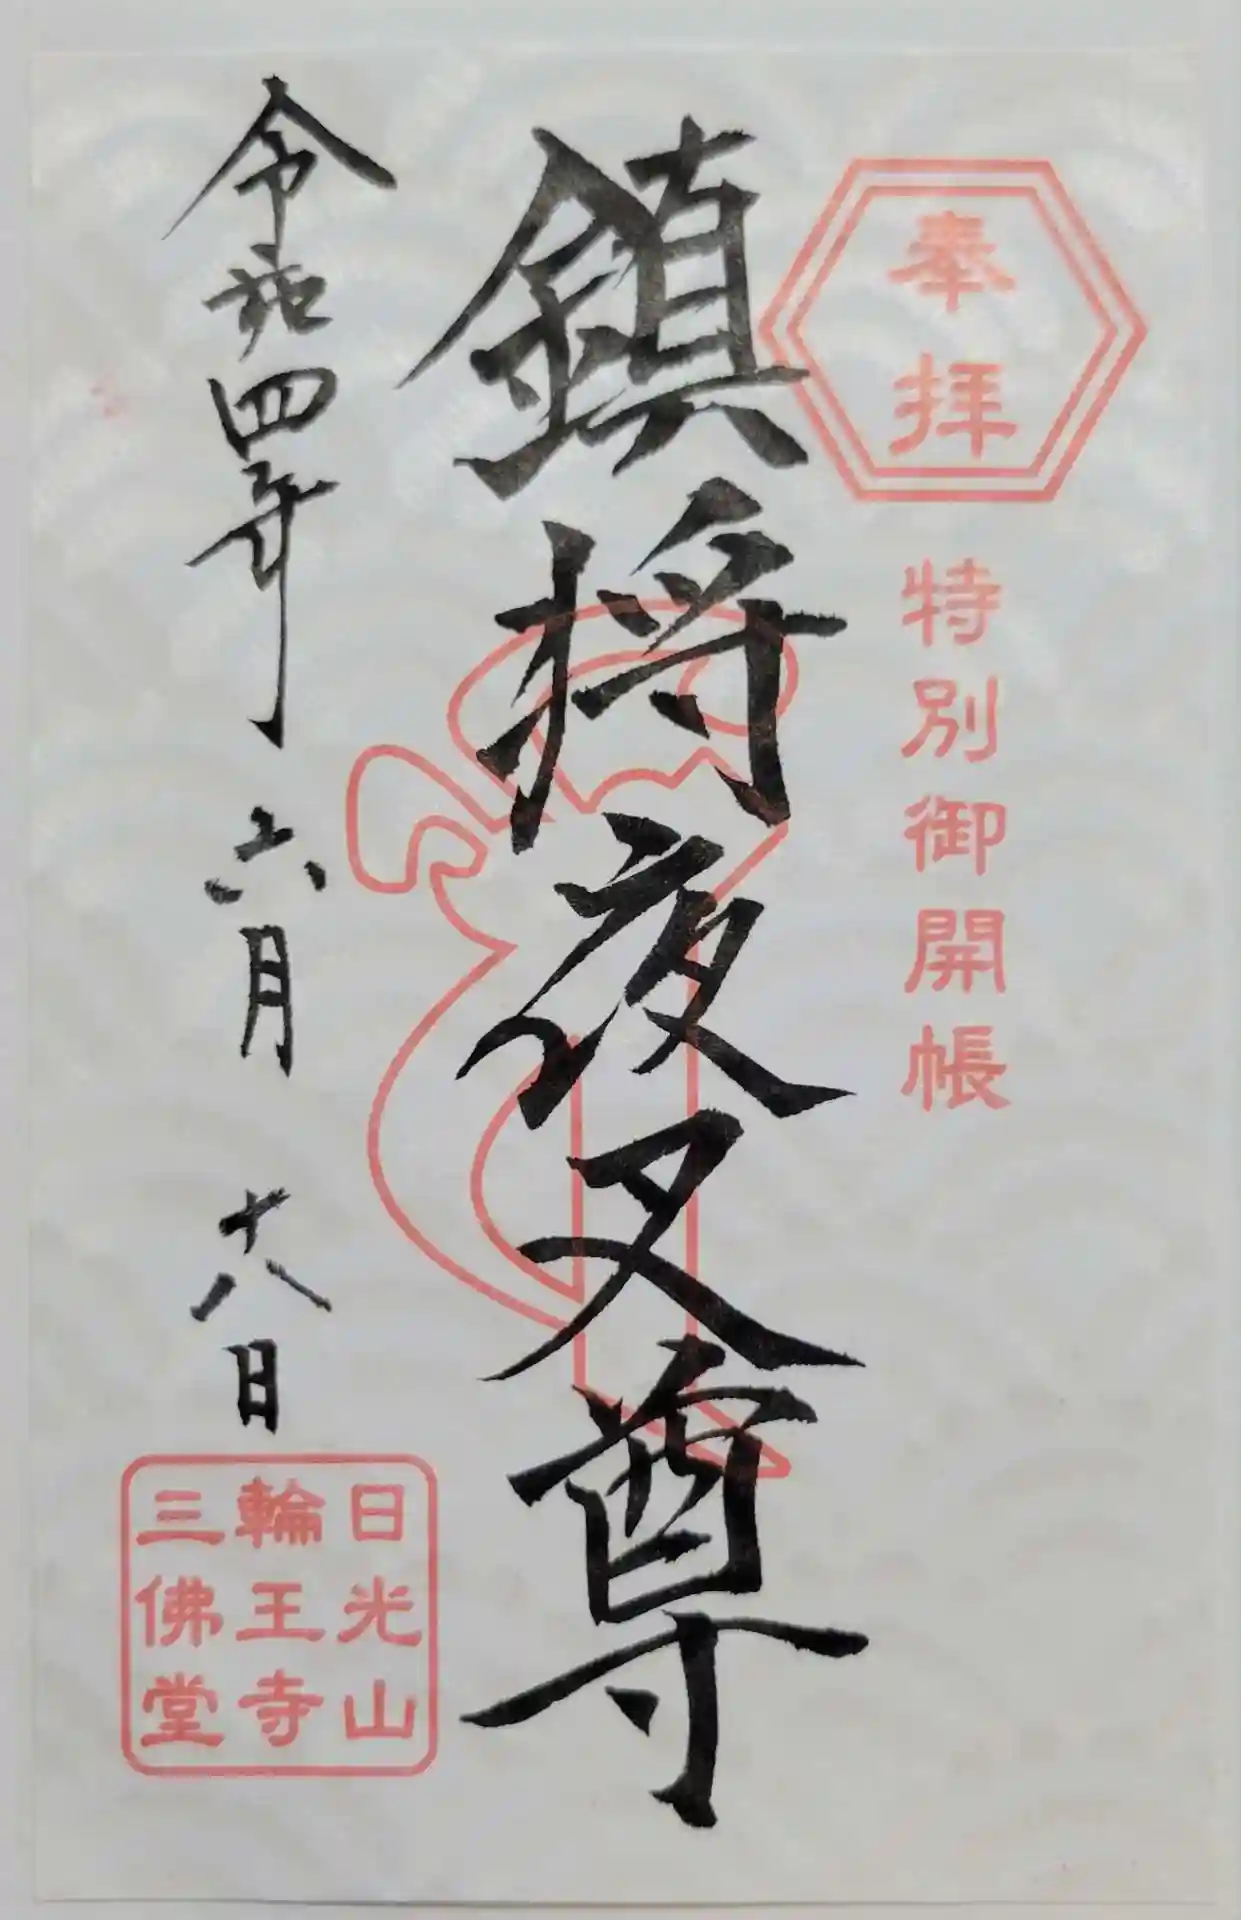 奉拝
特別御開帳
鎮将夜叉尊
令和四年 六月 十八日
日光山
輪王寺
三佛堂